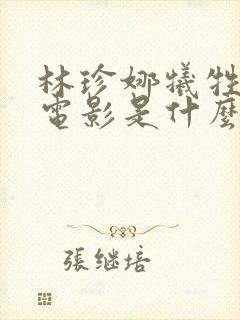 林珍娜犧牲
電影是什麼
張继培